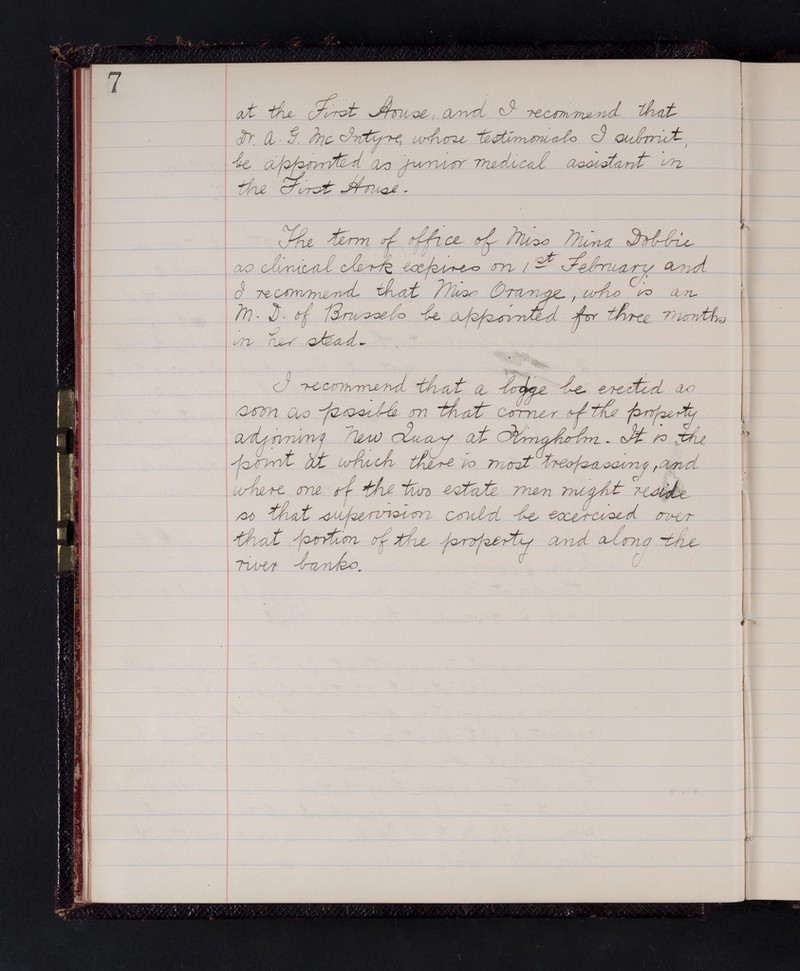 7
at the First House, and I recommend that
Dr. A. G. McIntyre, whose testimonials I submit,
be appointed as junior medical assistant in
the First House.
The term of office of Miss Mina Dobbie
as clinical clerk expires on 1st February and
I recommend that Miss Orange, who is an
M. D. of Brussels be appointed for three months
in her stead.
I recommend that a lodge be erected as
soon as possible on that corner of the property
adjoining New Quay at Kingholm. It is the
point at which there is most trespassing, and
where one of the two estate men might reside
so that supervision could be exercised over
that portion of the property and along the
river banks.